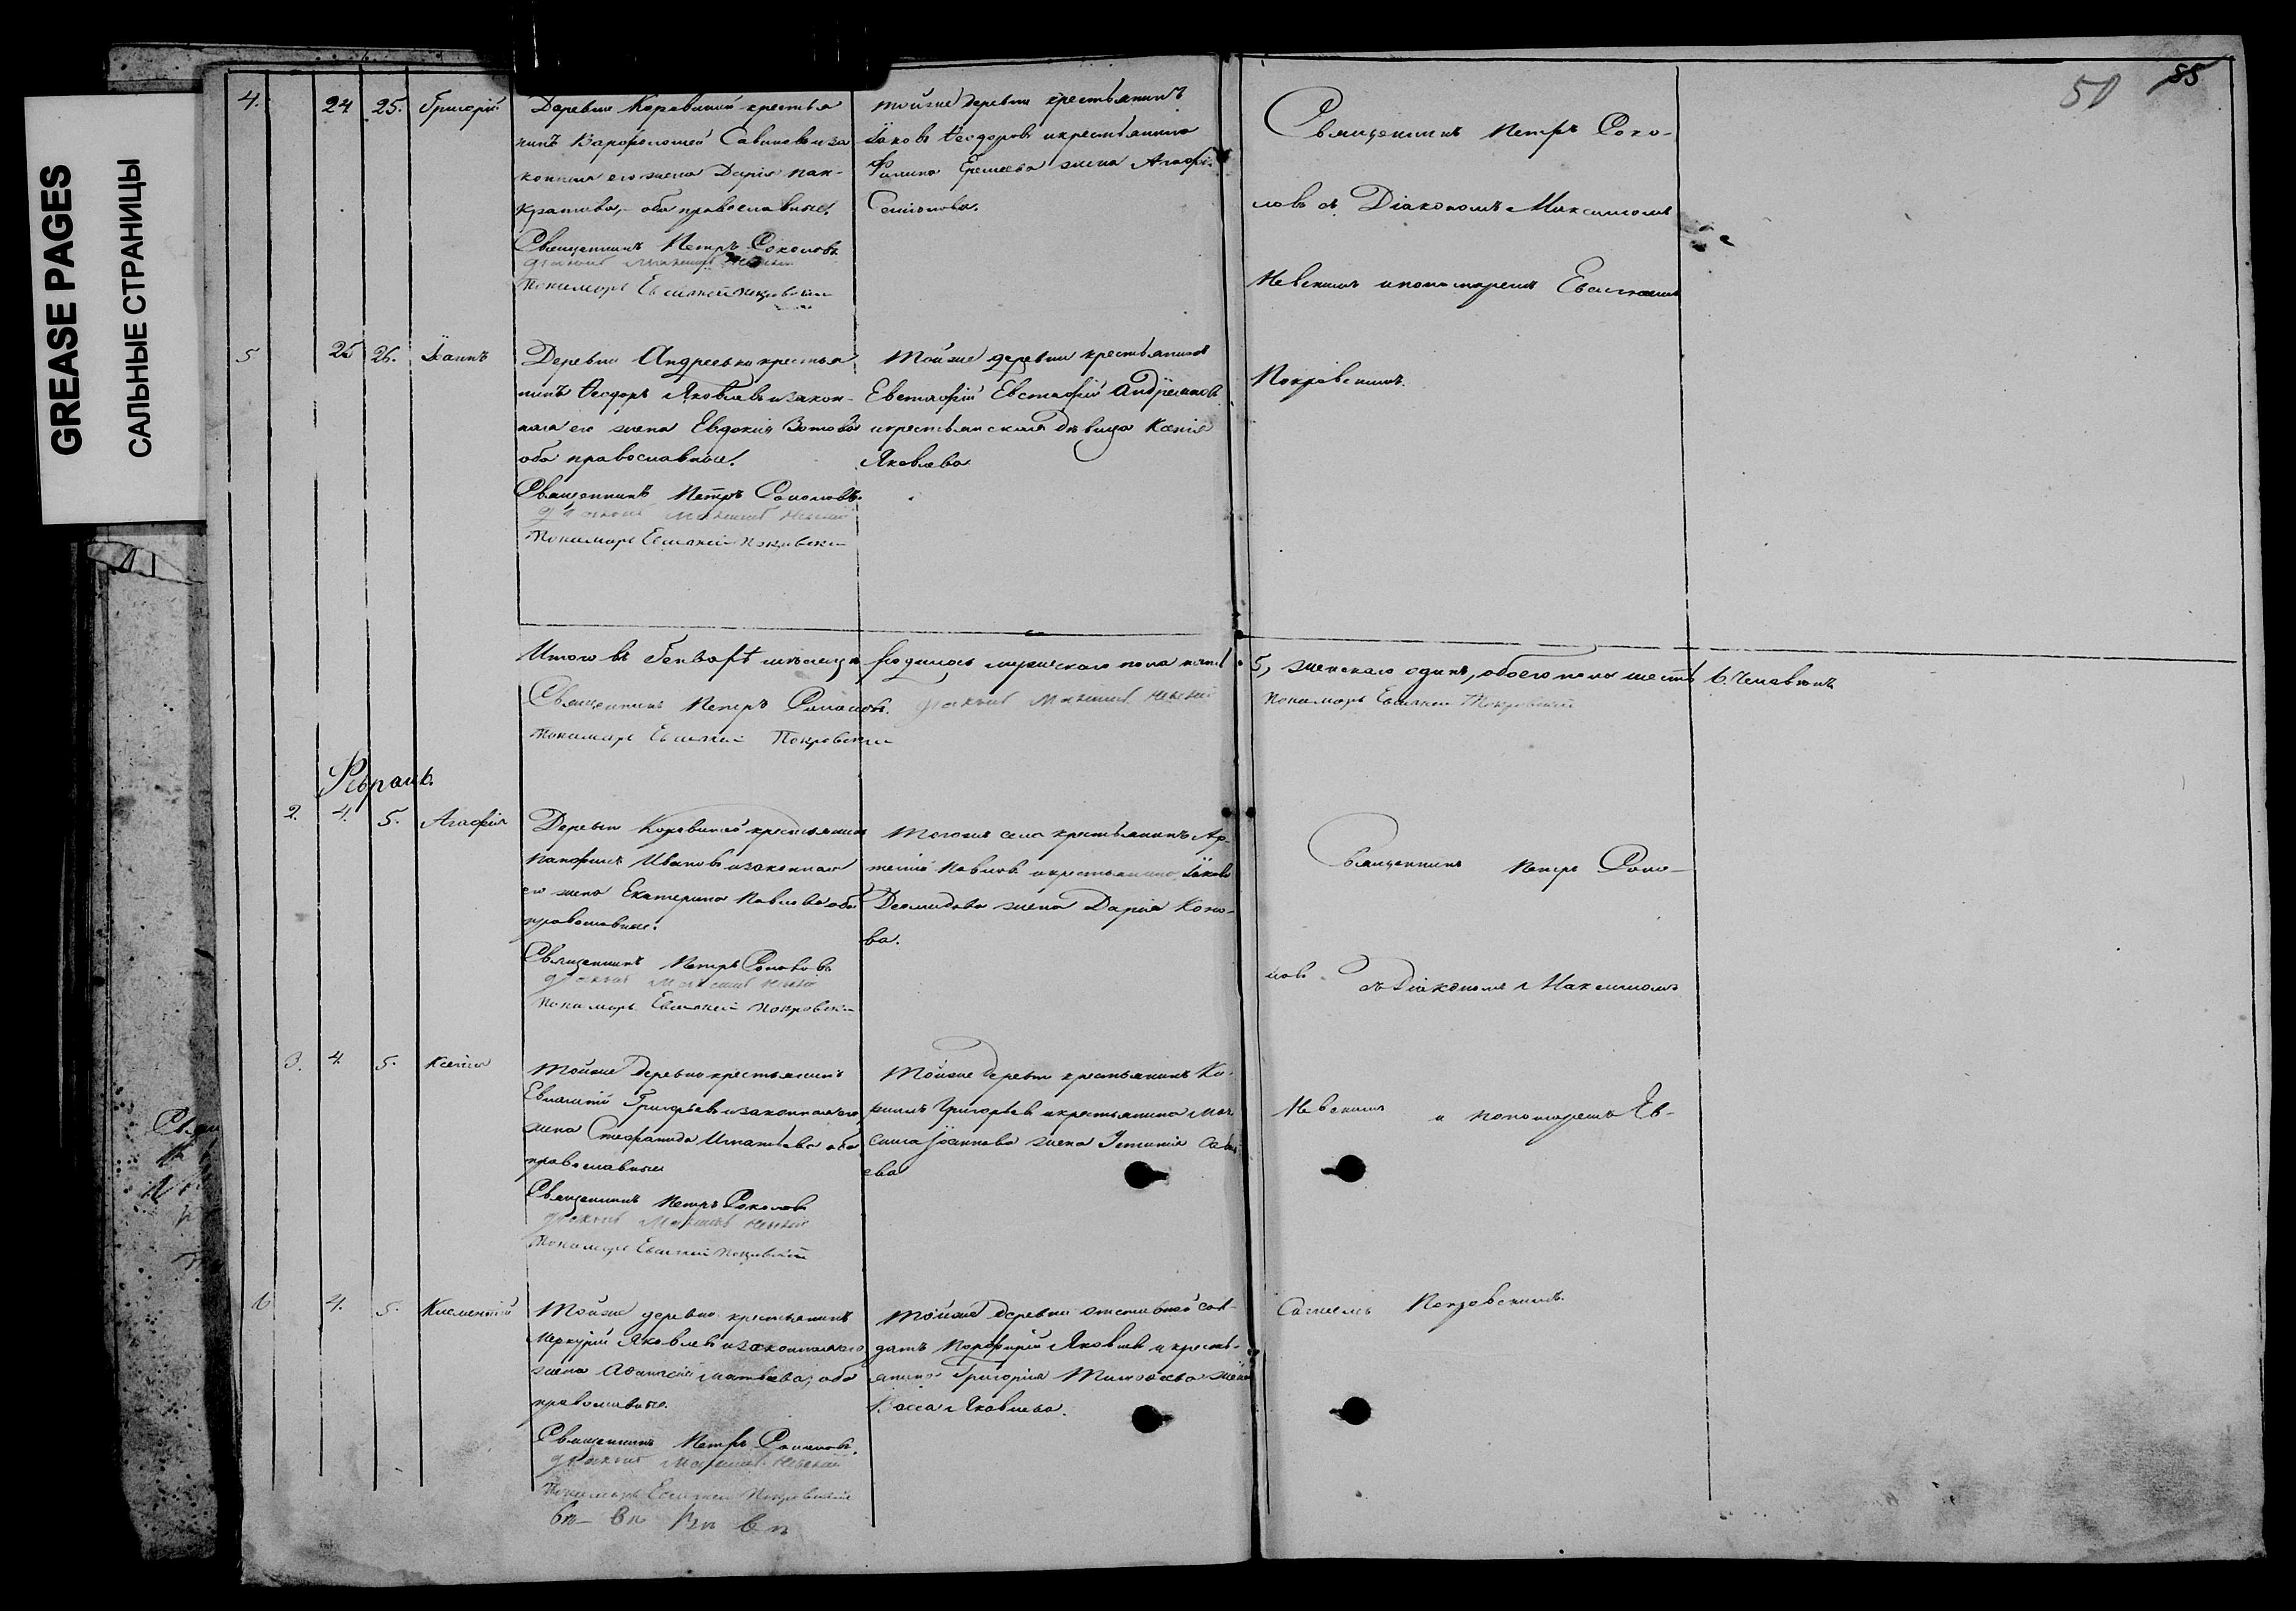 GREASE PAGES
САЛЬНЫЕ СТРАНИЦЫ
55
51
4. 24 25. Григорій
Деревни Коровиной крестья
нинъ Варфоломей Савиновъ и за
конная его жена Дарія Пан-
кратова, оба православные.
Священникъ Петръ Соколовъ
діаконъ Максимъ Невскій
Пономарь Евсигней Покровскій
тойже деревни крестьянинъ
Іаковъ Ѳеодоровъ и крестьянина
Филипа Ермеева жена Агафія
Семенова.
Священникъ Петръ Соко-
ловъ съ Діакономъ Максимомъ
Невскимъ и пономаремъ Евсигнеемъ
Покровскимъ.
5 25 26. Іоаннъ
Деревни Андреевки крестья
нинъ Ѳеодоръ Яковлевъ и закон-
ная его жена Евдокія Зотова
оба православные.
Священникъ Петръ Соколовъ
діаконъ Максимъ Невскій
Пономарь Евсигней Покровскій
Тойже деревни крестьянинъ
Евстафій Евстафій
и крестьянская дѣвица Ксенія
Яковлева
Итого въ Генварѣ мѣсяцѣ родилось мужескаго пола пять 5, женскаго одинъ, обоего пола шесть 6. человѣкъ
Священникъ Петръ Соколовъ. діаконъ Максимъ Невскій
Пономарь Евсигней Покровскій
Пономарь Евсигней Покровскій
Февраль.
2. 4. 5. Агафія
Деревни Коровиной крестьянинъ
Панфилъ Ивановъ и законная
его жена Екатерина Павлова оба
православные.
Священникъ Петръ Соколовъ
діаконъ Максимъ Невскій
Пономарь Евсигней Покровскій
Тогоже села крестьянинъ Ар
темій Павловъ и крестьянина Іакова
Деомидова жена Дарія Коно-
ва.
Священникъ Петръ Соко-
ловъ съ Діакономъ Максимомъ
Невскимъ и пономаремъ Ев-
сигнеемъ Покровскимъ.
3. 4. 5. Ксенія
Тойже деревни крестьянинъ
Евлампій Григорьевъ и законная его
жена Стефанида Игнатьева оба
православные
Священникъ Петръ Соколовъ
діаконъ Максимъ Невскій
Пономарь Евсигней Покровскій
Тойже деревни крестьянинъ Ки-
рилъ Григорьевъ и крестьянина Мак
сима Іоаннова жена Устинія Сав
ева
6 4. 5. Климентій
Тойже деревни крестьянинъ
Меркурій Яковлевъ и законная его
жена Матвѣева, оба
православные.
Священникъ Петръ Соколовъ.
діаконъ Максимъ Невскій
Пономарь Евсигней Покровскій
Тойже деревни отставной сол-
датъ Порфирій Яковлевъ и кресть-
янина Григорія Тимофеева жена
Васса Яковлева.